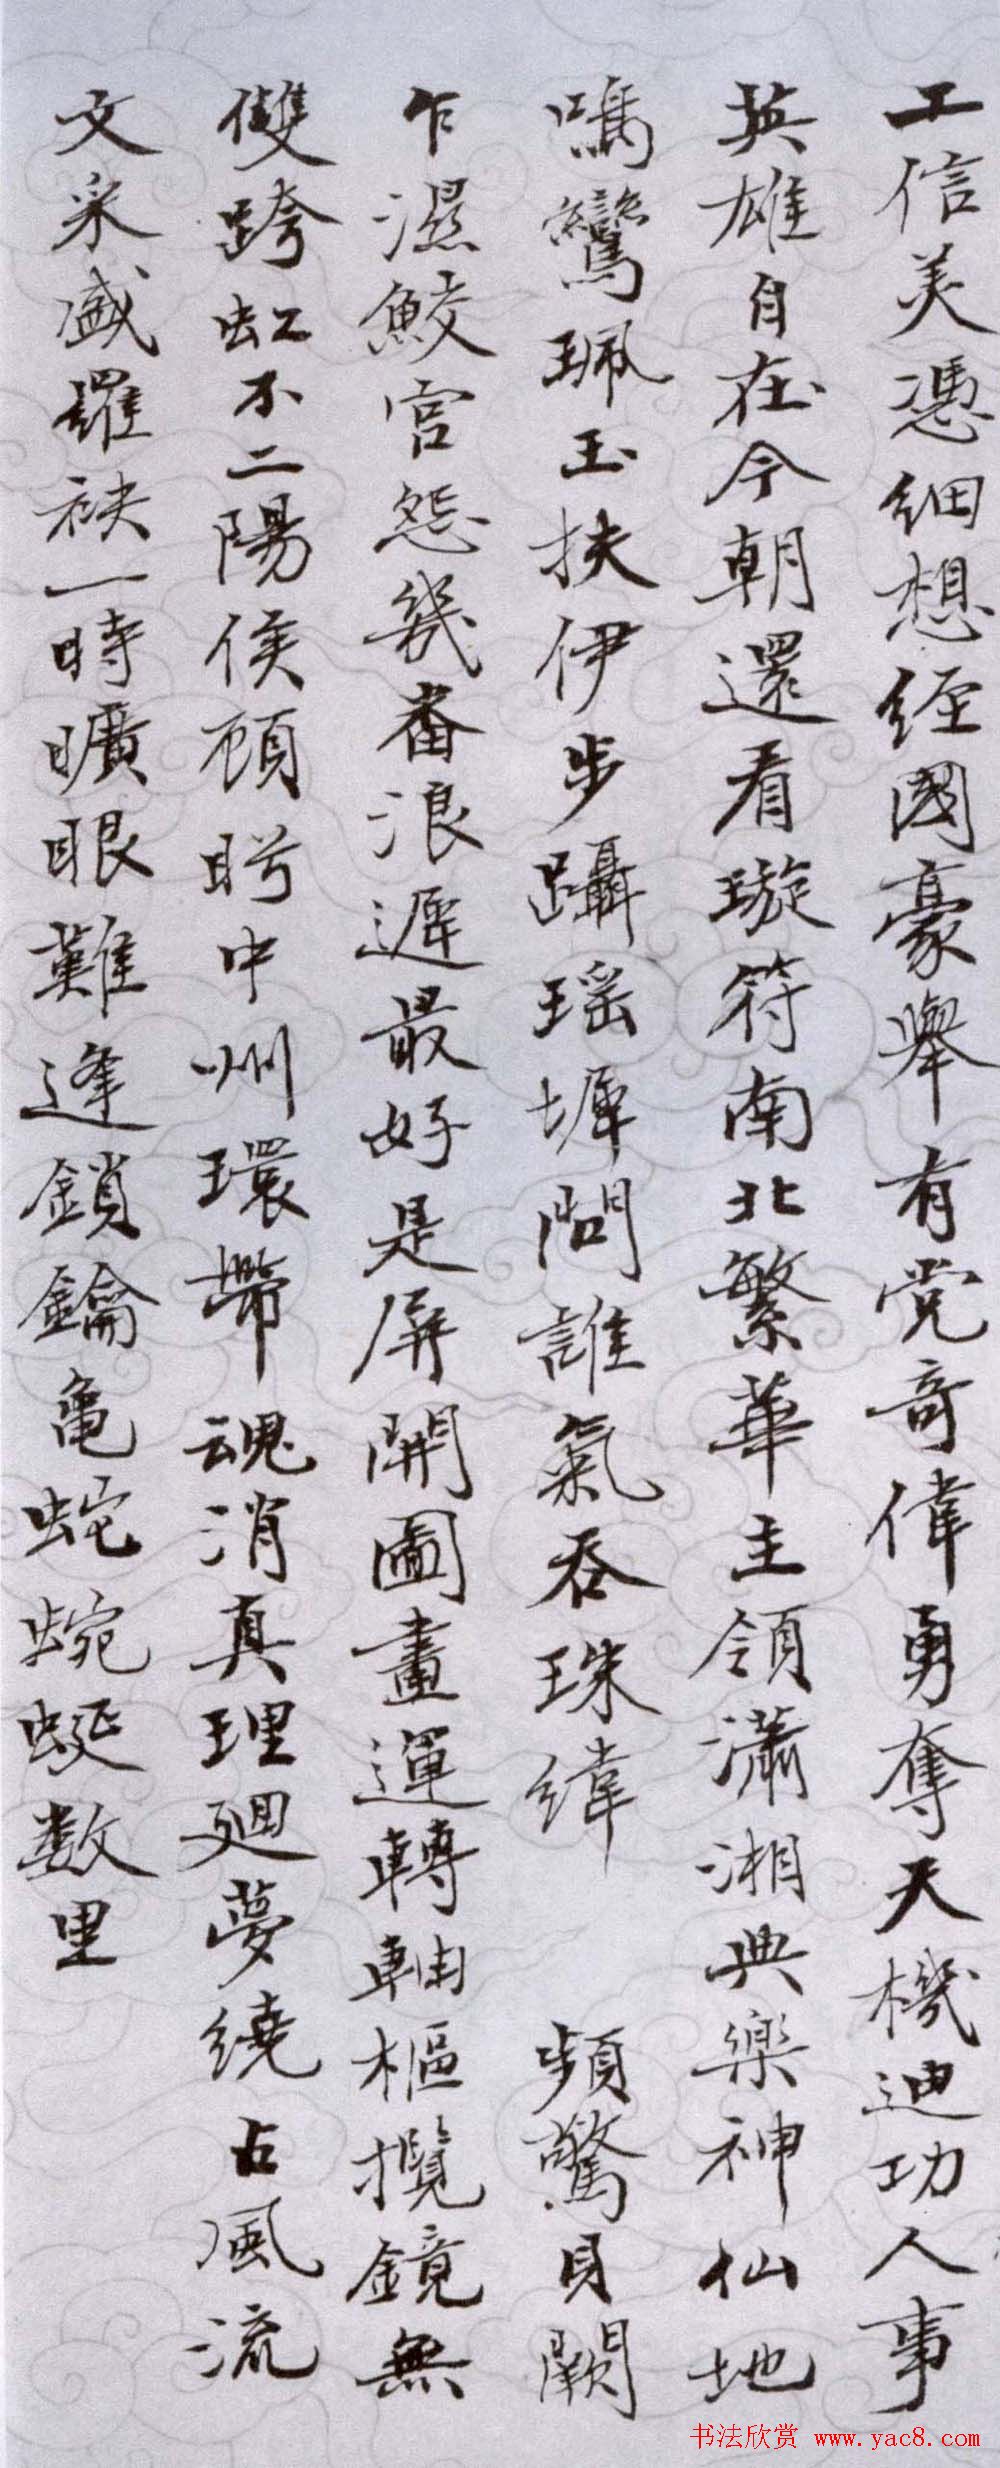 工信美憑細想経國豪舉有党奇偉勇奪天機迪功人事
英雄自在今朝還看璇符南北繁華主領瀟湘典樂神仙地
鳴鸞珮玉扶伊步躡瑤墀問誰氣吞珠緯 頻驚貝闕
乍濕鮫宮怨幾番浪遲最好是屏開圖畫運轉軸樞攬鏡無
雙跨虹不二陽侯顧眄中州環帶魂消真理廻夢繞占風流
文采盛羅袂一時曠眼難逢鎖鑰亀蛇蜿蜒数里
书法欣赏 www.yac8.com